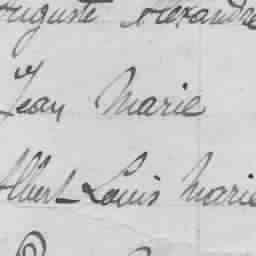 Auguste Alexandre
Jean Marie
Albert Louis Marie